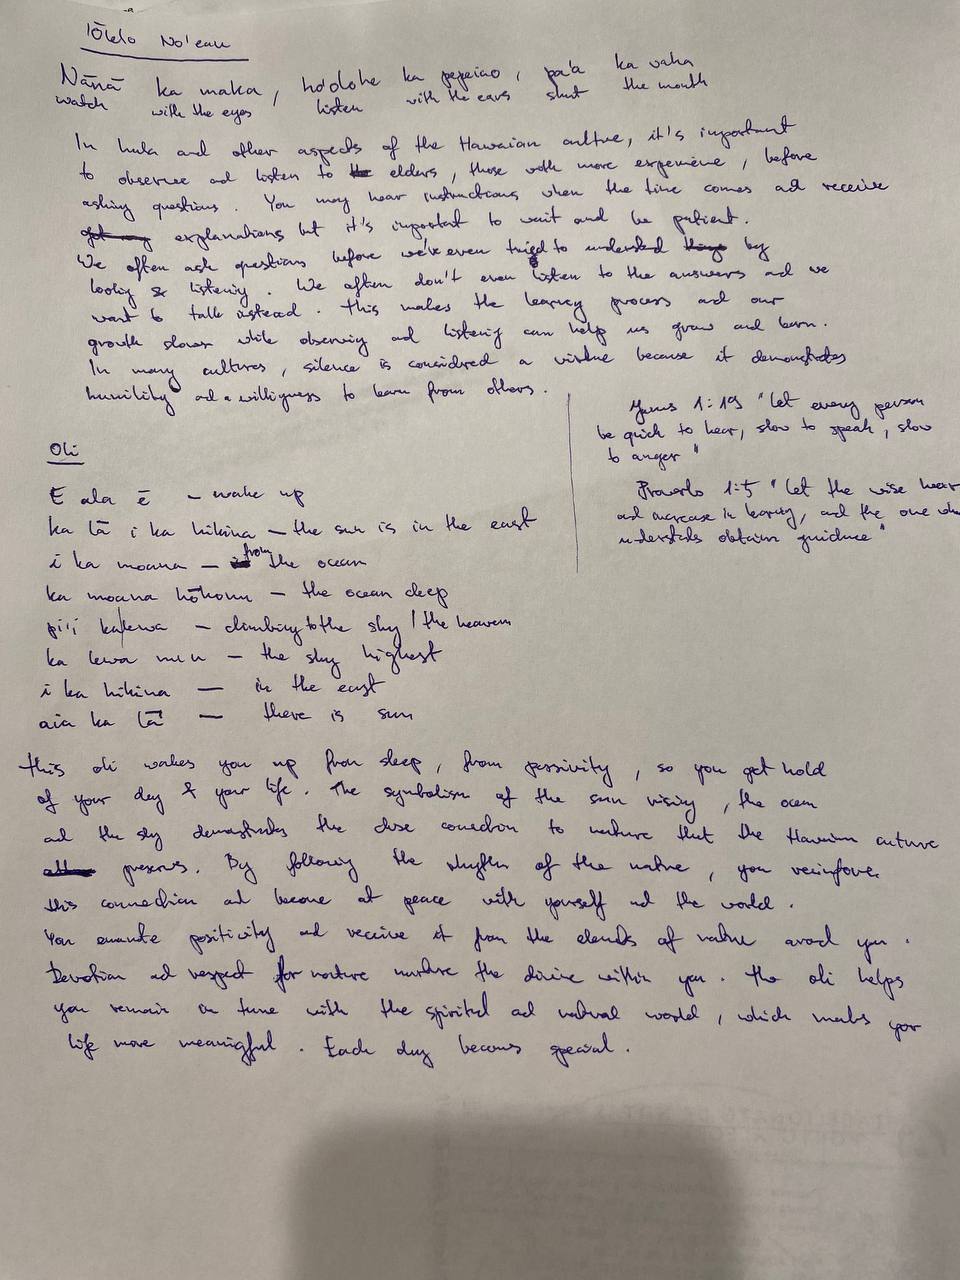 'Ōlelo No'eau
Nānā ka maka, ho'olohe ka pepeiao, pa'a ka waha
watch with the eyes listen with the ears shut the mouth
In hula and other aspects of the Hawaiian culture, it's important
to observe ad listen to the elders, those with more experience, before
asking questions. You may hear instructions when the time comes ad receive
explanations but it's important to wait and be patient.
We often ask questions before we've even tried to understand things by
looking & listening. We often don't even listen to the answers ad we
want to talk instead. This makes the learning process and our
growth slower while observing ad listening can help us grow and learn.
In many cultures, silence is considered a virtue because it demonstrates
humility ad a willigness to learn from others.
James 1:19 "let every person
be quick to hear, slow to speak, slow
to anger"
Proverbs 1:5 "let the wise hear
and increase in learning, and the one who
understands obtain guidance"
Oli
E ala ē – wake up
ka lā i ka hikina – the sun is in the east
i ka moana – from the ocean
ka moana hōhonu – the ocean deep
pi'i ka lewa – climbing to the sky / the heavens
ka lewa nu'u – the sky highest
i ka hikina – in the east
aia ka lā – there is sun
This oli wakes you up from sleep, from passivity, so you get hold
of your day & your life. The symbolism of the sun rising, the ocean
ad the sky demonstrates the close connection to nature that the Hawaiian culture
preserves. By following the rhythm of the nature, you reinforce
this connection ad become at peace with yourself ad the world.
You emanate positivity ad receive it from the elements of nature around you.
Devotion ad respect for nature nurture the divine within you. The oli helps
you remain in tune with the spiritual ad natural world, which makes your
life more meaningful. Each day becomes special.